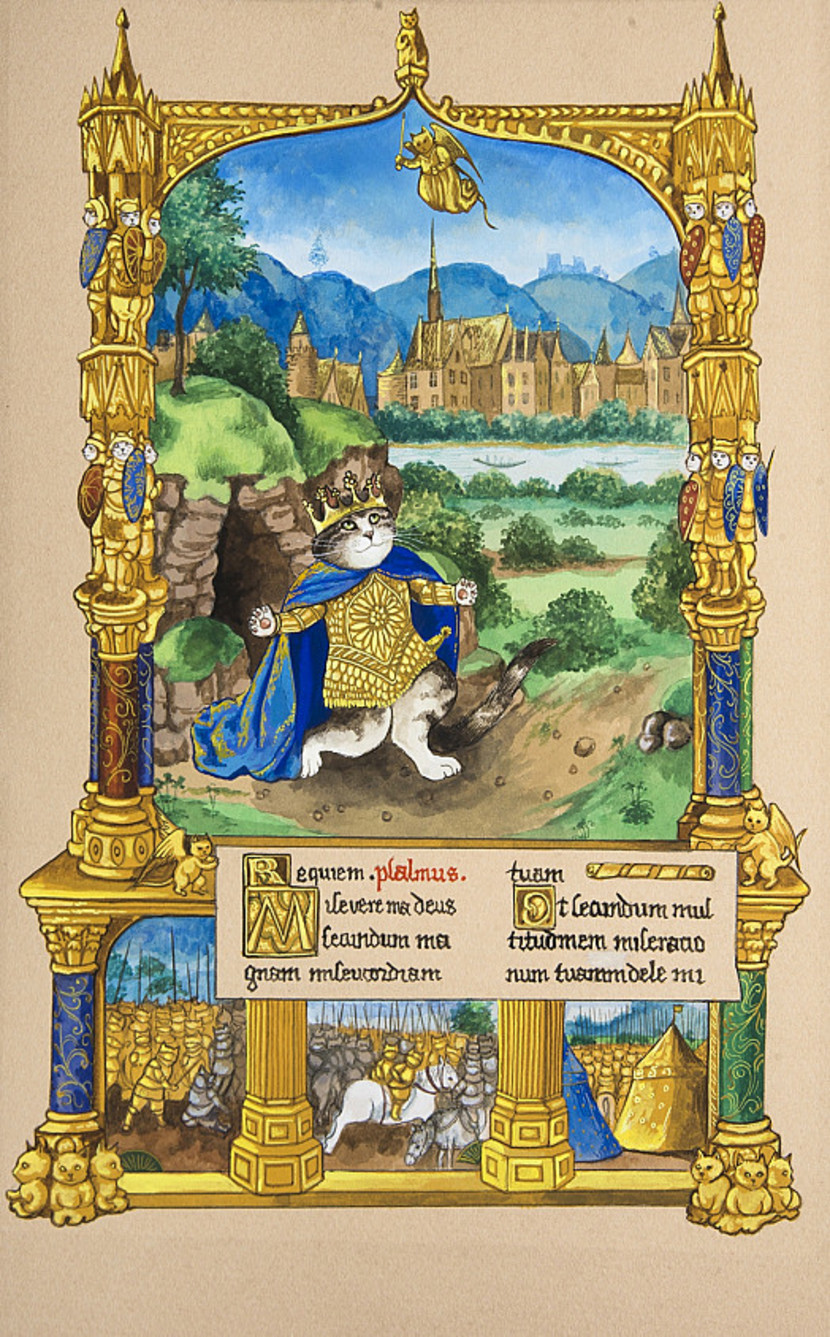 Requiem .psalmus.
Miserere ma deus
secundum ma
gnam misericordiam
tuam
Et secundum mul
titudinem miseracio
num tuarum dele mi